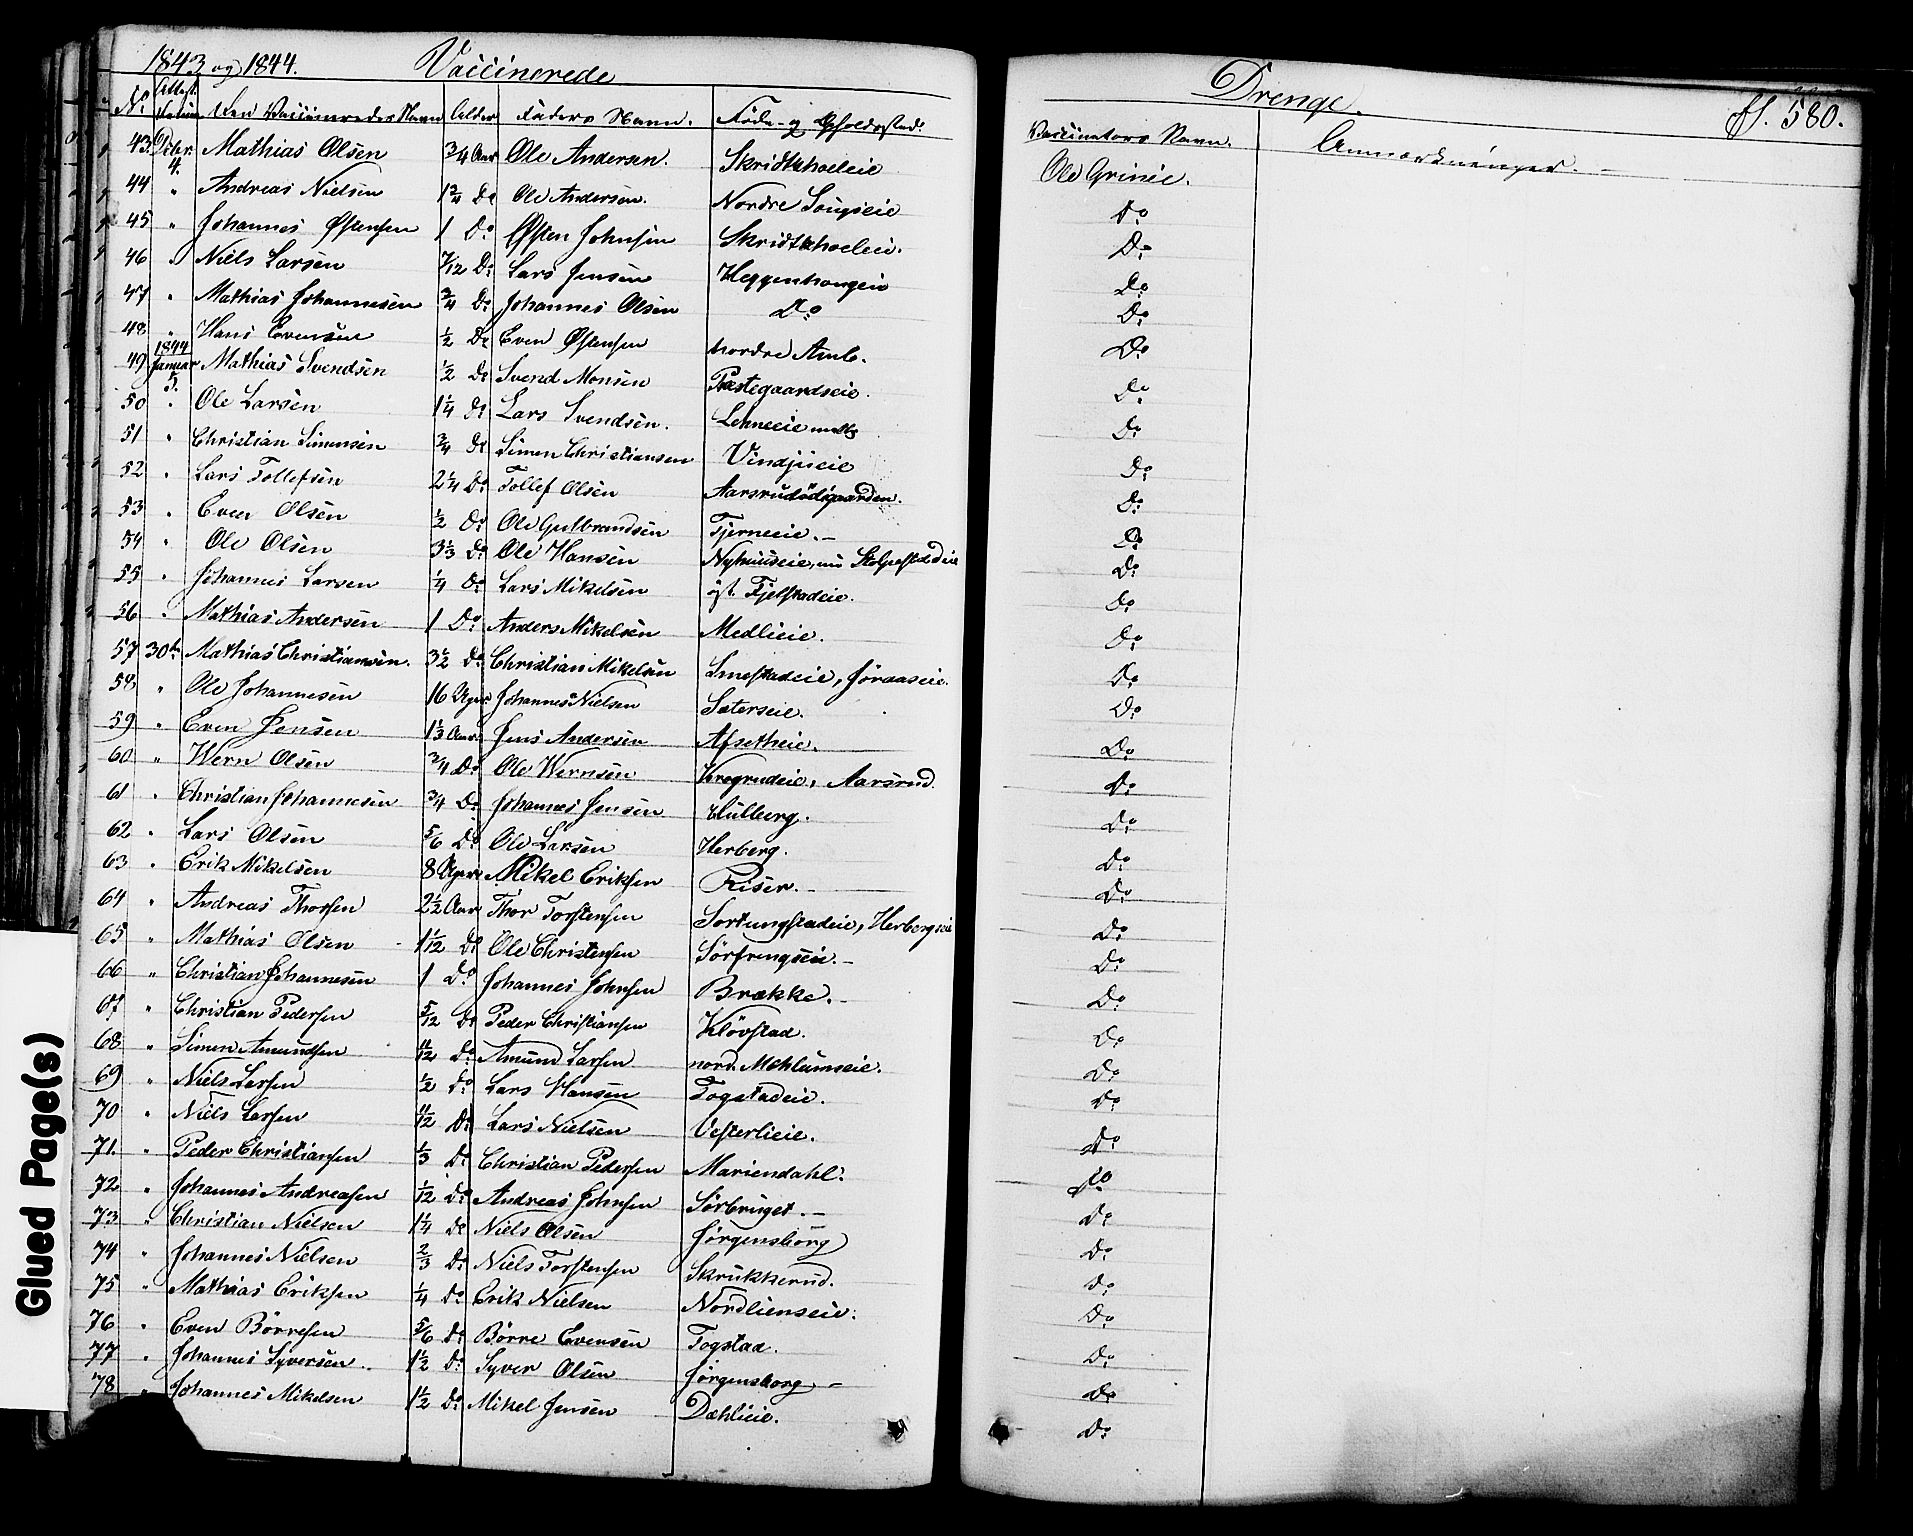 1843 og 1844. Vaccinerede Drenge. fl. 580.
No Attest. Datum Den Vaccineredes Navn Alder Faders Navn. Föde- og Opholdssted. Vaccinators Navn. Anmærkninger.
43. Dcbr. 4. Mathias Olsen 3/4 Aar Ole Andersen. Skridtshoeleie Ole Grinie.
44 " Andreas Nielsen 1 2/4 Do Ole Andersen. Nordre Do
45 " Johannes Østensen 1 Do Østen Johnsen Skridtshoeleie. Do
46 " Niels Larsen 7/12 Do Lars Jensen Heggenhougeie Do
47 " Mathias Johannesen 3/4 Do Johannes Olsen Do Do
48 " Hans Evensen 1/2 Do Even Østensen nordre Amb. Do
49 1844 Januar 5. Mathias Svendsen 1/2 Do Svend Monsen Præstegaardseie. Do
50 " Ole Larsen 1 1/4 Do Lars Svendsen. Lehneeie Do
51 " Christian Simensen 3/4 Do Simen Christiansen Vindjueie Do
52 " Lars Tollefsen 2 1/4 Do Tollef Olsen Aarsrudödegaarden. Do
53 " Even Olsen 1/2 Do Ole Gulbrandsen Tjerneeie. Do
54 " Ole Olsen 3 1/3 Do Ole Hansen Nyhuuseie, nu Stolpestadeie Do
55 " Johannes Larsen 1/4 Do Lars Mikelsen øst. Fjelstadeie. Do
56 " Mathias Andersen 1 Do Anders Mikelsen Medlieie. Do
57 30te Mathias Christiansen. 3 1/2 Do Christian Mikelsen Smestadeie, Jöraaseie. Do
58 " Ole Johannesen 16 Uger Johannes Nielsen Sæterseie. Do
59 " Even Jensen 1 1/3 Aar Jens Andersen Afsetheie. Do
60 " Wern Olsen 3/4 Do Ole Wernsen Korogrudeie, Aarsrud. Do
61 " Christian Johannesen 3/4 Do Johannes Jensen Hulberg. Do
62 " Lars Olsen 5/6 Do Ole Larsen Herberg. Do
63 " Erik Mikelsen 8 Uger Mikel Eriksen Riser. Do
64 " Andreas Thorsen 2 1/2 Aar Thor Torstensen Sortungstadeie, Herbergeie Do
65 " Mathias Olsen 1 1/12 Do Ole Christensen Sörfrengseie. Do
66 " Christian Johannesen 1 Do Johannes Johnsen Brække. Do
67 " Christian Pedersen 5/12 Do Peder Christiansen Klövstad. Do
68 " Simen Amundsen 11/12 Do Amund Larsen nord. Mehlumseie. Do
69 " Niels Larsen 1/2 Do Lars Hansen Togstadeie. Do
70 " Niels Larsen 11/12 Do Lars Nielsen Vesterlieie. Do
71. " Peder Christiansen 1/3 Do Christian Pedersen Mariendahl. Do
72 " Johannes Andreasen 1/12 Do Andreas Johnsen Sörbruget. Do
73 " Christian Nielsen 1 1/4 Do Niels Olsen Jørgensborg Do
74 " Johannes Nielsen 2/3 Do Niels Torstensen Skrukkerud. Do
75 " Mathias Eriksen 1/4 Do Erik Nielsen Nordlienseie. Do
76 " Even Børresen 5/6 Do Børre Evensen Togstad. Do
77 " Johannes Syversen 1 1/2 Do Syver Olsen Jørgensborg Do
78 " Johannes Mikelsen 1 1/2 Do Mikel Jensen Dæhlieie. Do
Glued Page(s)